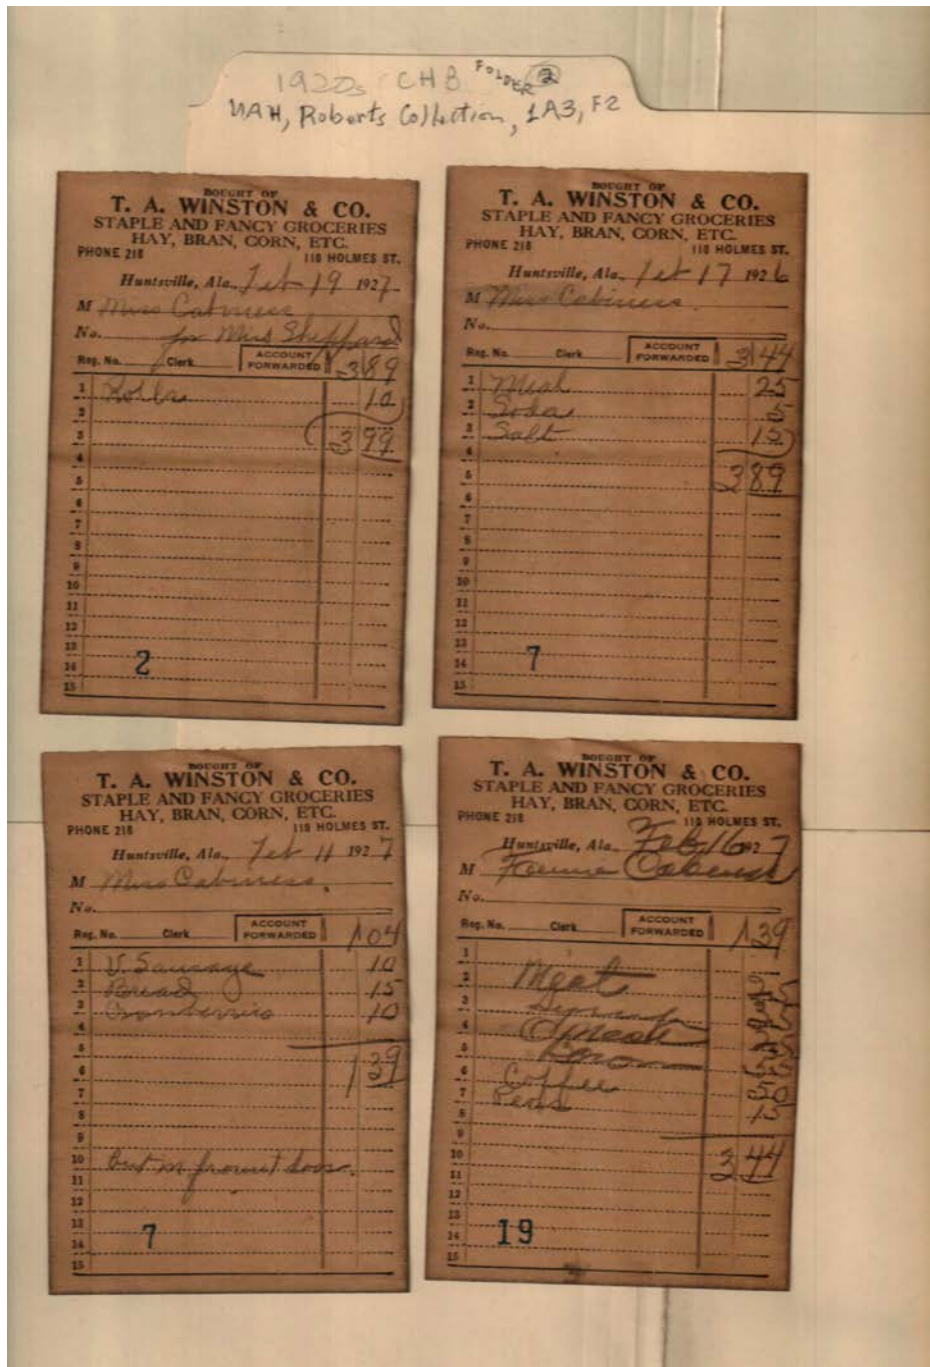 1920s CHB FOLDER 2
UAH, Roberts Collection, 1A3, F2
BOUGHT OF
T. A. WINSTON & CO.
STAPLE AND FANCY GROCERIES
HAY, BRAN, CORN, ETC.
PHONE 218 118 HOLMES ST.
Huntsville, Ala., Feb 19 1927
M Miss Cabiness
No. for Miss Sheppard
Reg. No. Clerk ACCOUNT FORWARDED 3 89
1 Rolls 10
2
3 3 99
4
5
6
7
8
9
10
11
12
13
14 2
15
BOUGHT OF
T. A. WINSTON & CO.
STAPLE AND FANCY GROCERIES
HAY, BRAN, CORN, ETC.
PHONE 218 118 HOLMES ST.
Huntsville, Ala., Feb 17 1926
M Miss Cabiness
No.
Reg. No. Clerk ACCOUNT FORWARDED 3 44
1 Meal 25
2 Soda 5
3 Salt 15
4
5 3 89
6
7
8
9
10
11
12
13
14 7
15
BOUGHT OF
T. A. WINSTON & CO.
STAPLE AND FANCY GROCERIES
HAY, BRAN, CORN, ETC.
PHONE 218 118 HOLMES ST.
Huntsville, Ala., Feb 11 1927
M Miss Cabiness.
No.
Reg. No. Clerk ACCOUNT FORWARDED 1 04
1 V. Sausage 10
2 Bread 15
3 Cranberries 10
4
5
6 1 39
7
8
9
10 front door.
11
12
13
14 7
15
BOUGHT OF
T. A. WINSTON & CO.
STAPLE AND FANCY GROCERIES
HAY, BRAN, CORN, ETC.
PHONE 218 118 HOLMES ST.
Huntsville, Ala., Feb 16 1927
M Fannie Cabiness
No.
Reg. No. Clerk ACCOUNT FORWARDED 1 39
1
2 Meat
3
4
5
6 Coffee
7 Peas 50
8 15
9
10 3 44
11
12
13
14 19
15